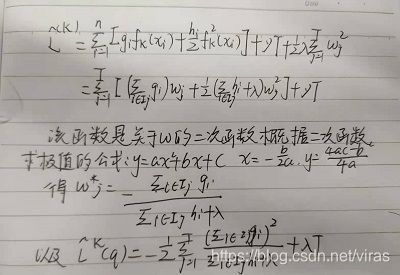 L̃^(K) = Σ_{i=1}^{n} [g_i f_k(x_i) + h_i/2 f_k²(x_i)] + γT + ½λ Σ_{j=1}^{T} w_j²
= Σ_{j=1}^{T} [(Σ_{i∈I_j} g_i) w_j + ½(Σ_{i∈I_j} h_i + λ) w_j²] + γT
该函数是关于w的二次函数 根据二次函数
求极值的公式: y=ax²+bx+c x=-b/2a, y=4ac-b/4a
得 w_j* = - Σ_{i∈I_j} g_i / Σ_{i∈I_j} h_i+λ
以及 L̃^K(q) = -½ Σ_{j=1}^{T} (Σ_{i∈I_j} g_i)² / Σ_{i∈I_j} h_i+λ + λT
https://blog.csdn.net/viras